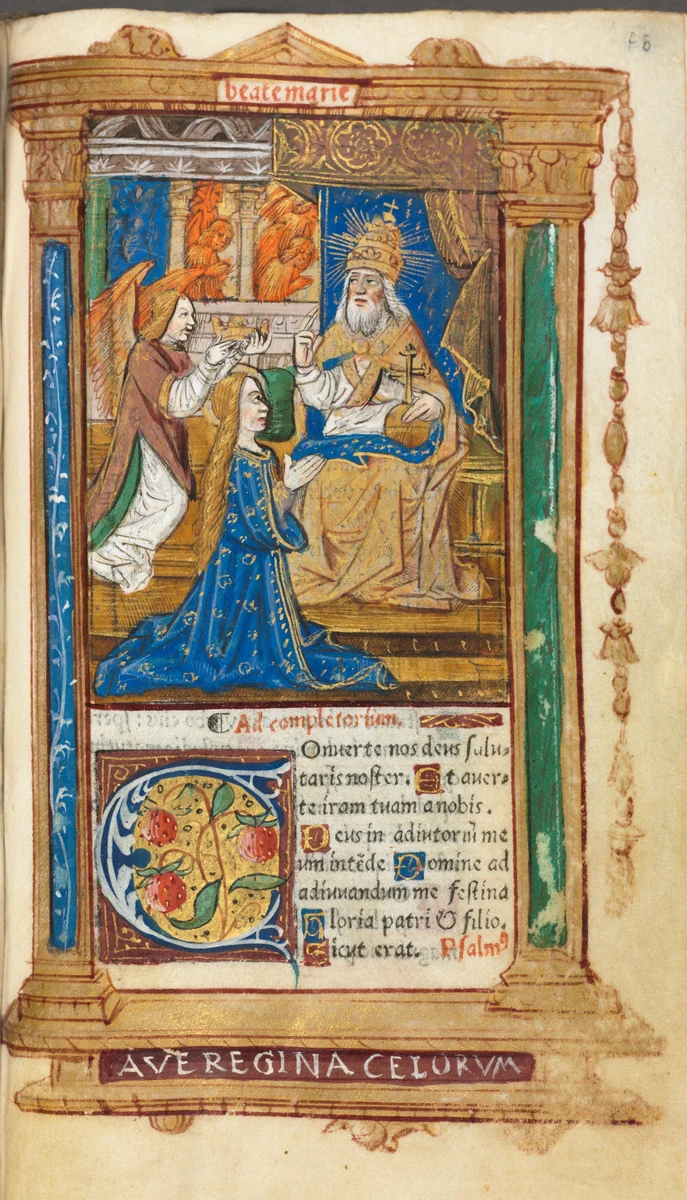 beate marie
Ad completorium.
Onuerte nos deus salu-
taris noster. Et auer-
te iram tuam a nobis.
Deus in adiutoriũ me
um intẽde Domine ad
adiuuandum me festina
Gloria patri & filio.
Sicut erat. Psalmꝰ
AVE REGINA CELORVM